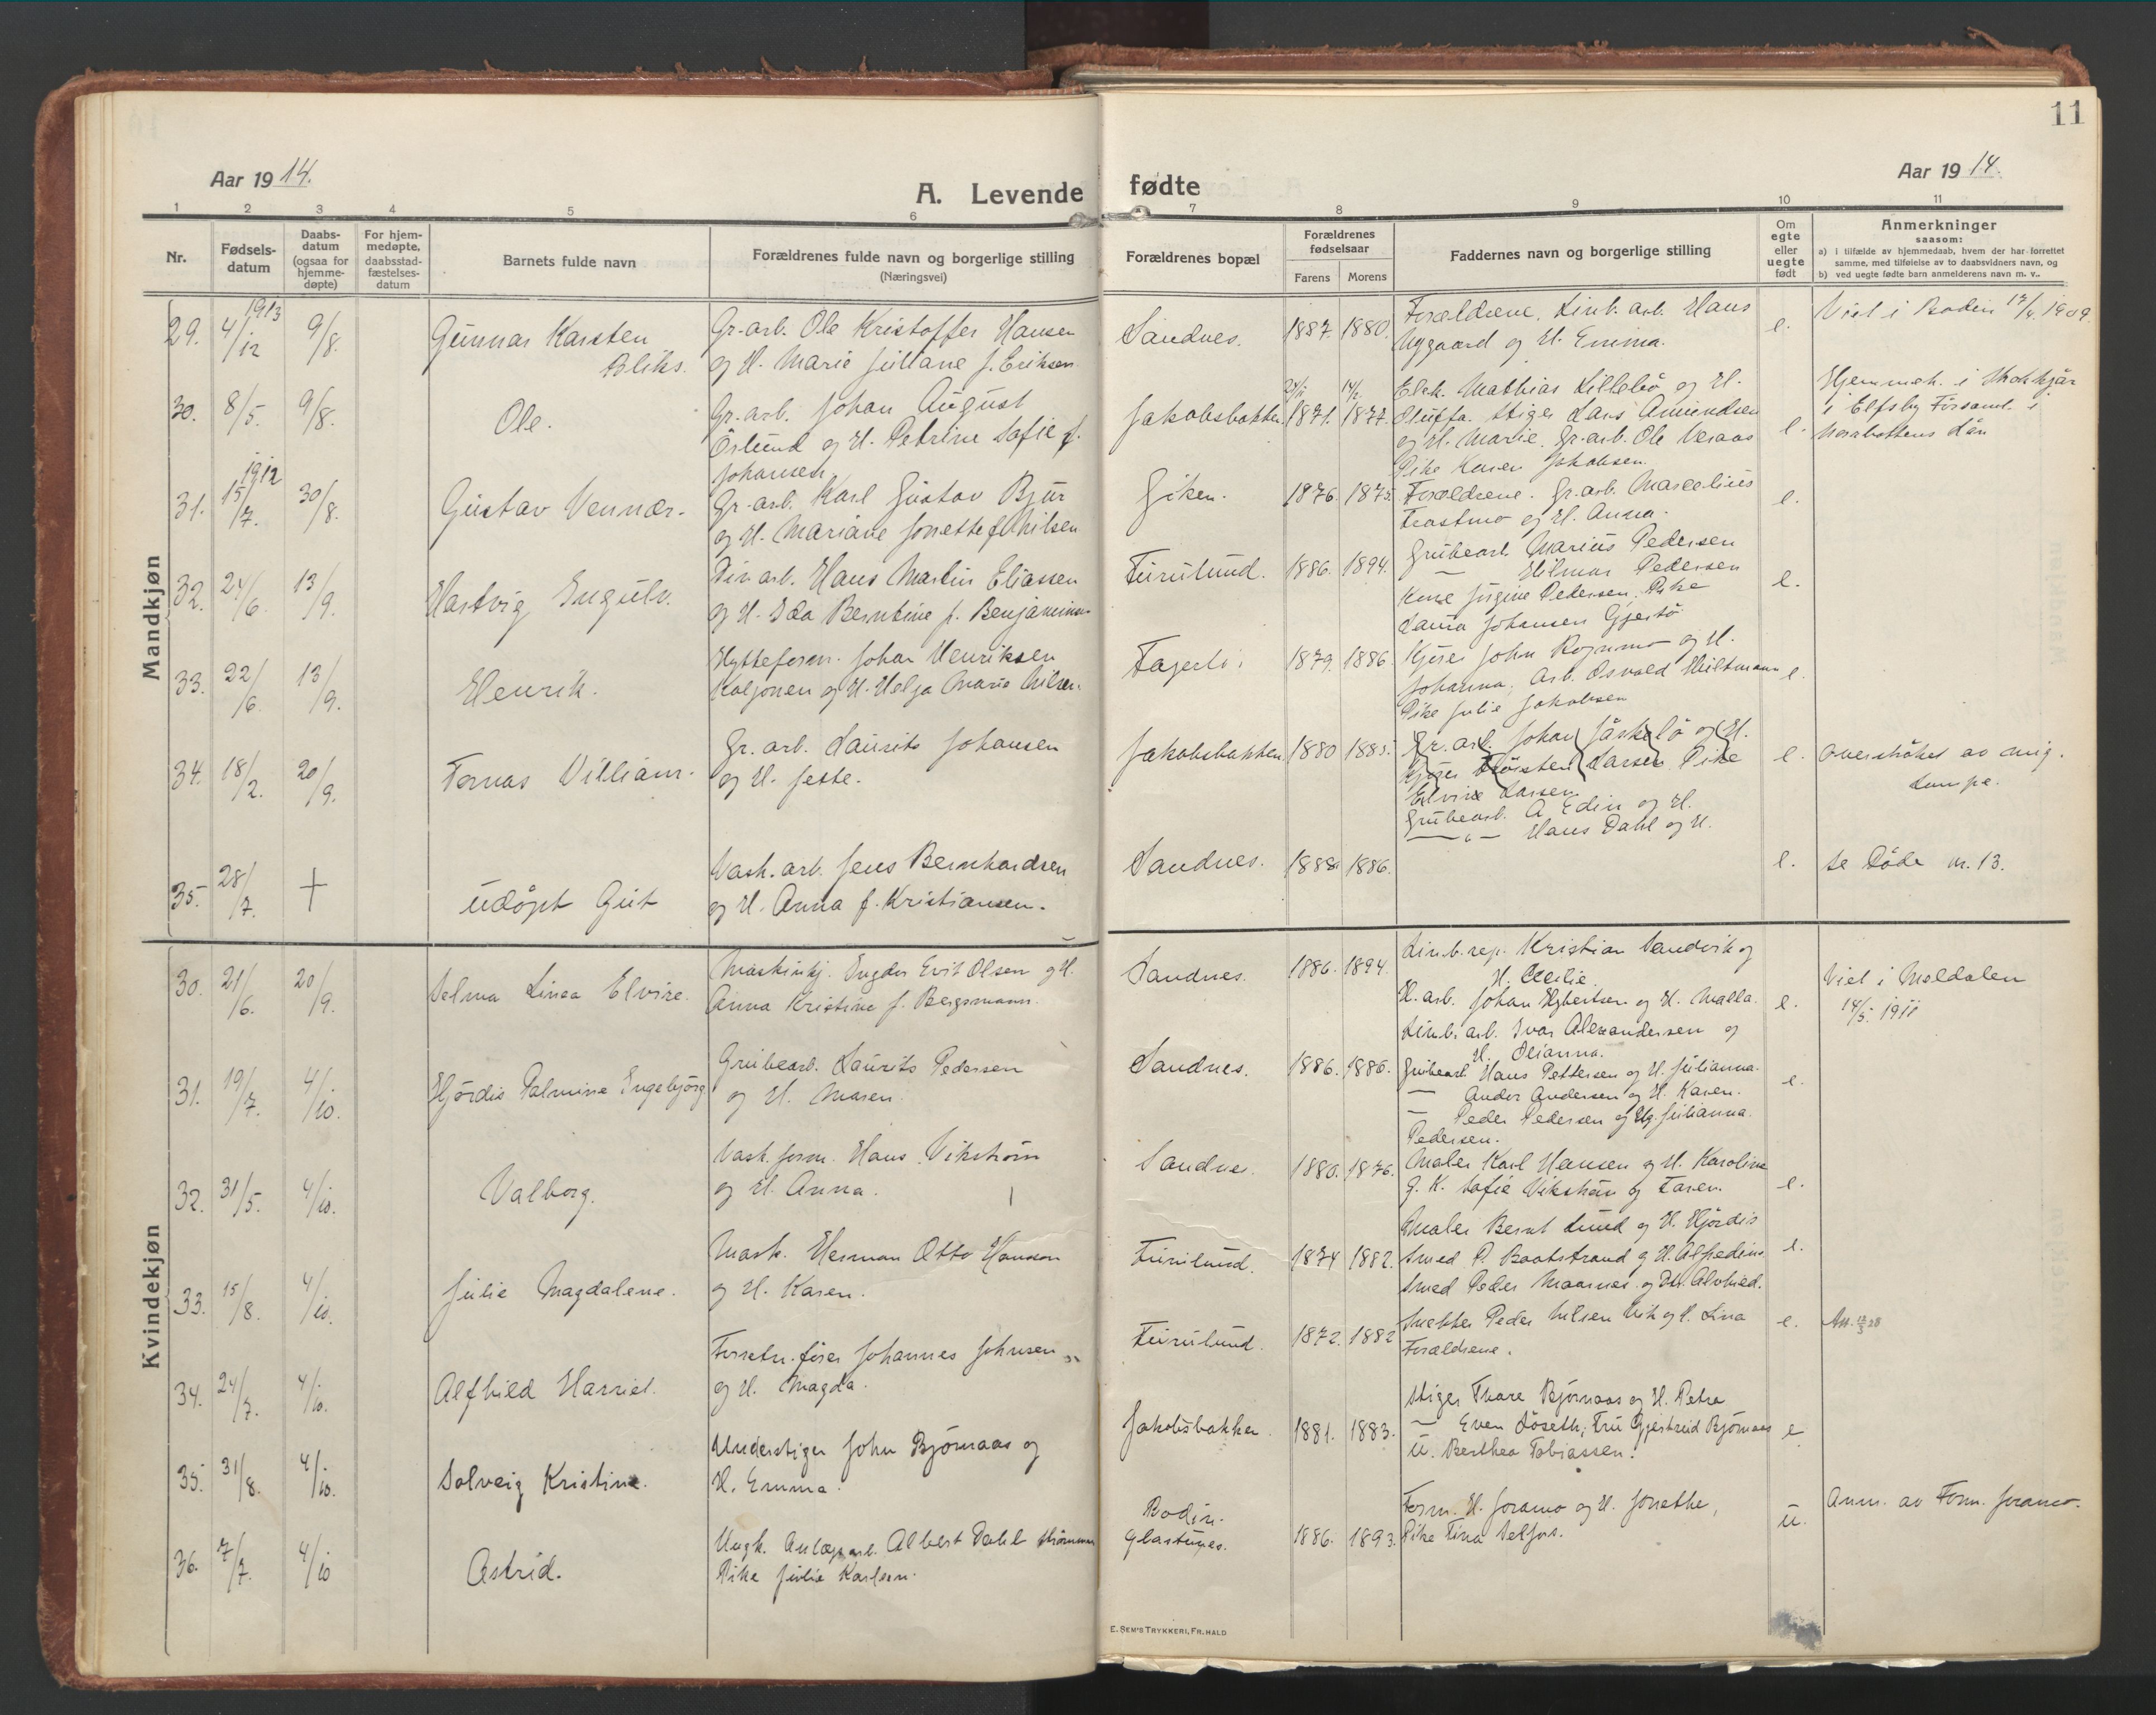 11
Aar 1914.
A. Levende fødte
Aar 1914.
1 2 3 4 5 6 7 8 9 10 11
Nr.
Fødsels-
datum
Daabs-
datum
(ogsaa for
hjemme-
døpte)
For hjem-
medøpte,
daabsstad-
fæstelses-
datum
Barnets fulde navn
Forældrenes fulde navn og borgerlige stilling
(Næringsvei)
Forældrenes bopæl
Forældrenes
fødselsaar
Farens Morens
Faddernes navn og borgerlige stilling
Om
egte
eller
uegte
født
Anmerkninger
saasom:
a) i tilfælde av hjemmedaab, hvem der har forrettet
samme, med tilføielse av to daabsvidners navn, og
b) ved uegte fødte barn anmelderens navn m. v..
Mandkjøn
29. 1913 4/12 9/8.
Gunnar Karsten
Bliks.
Gr.arb. Ole Kristoffer Hansen
og H. Marie Juliane f. Eriksen
Sandnes.
1887. 1880.
Forældrene. Linb. arb. Hans
Nygaard og H. Emma.
e.
Viet i Bodin 1909.
30. 8/5. 9/8.
Ole.
Gr.arb. Johan August
Örlund og H. Petrine Sofie f.
Johansen.
Jakobsbakken.
1871. 1877.
Elek. Mathias Lillebö og H.
Oluffa. Stiger Lars Amundsen
og H. Marie. Gr.arb. Ole Veraas
Pike Karen Jakobsen.
e.
Hjemmeh. i
i Elfsby Församl. i
Norrbottens Län
31. 1912 15/7. 30/8.
Gustav Vennær.
Gr.arb. Karl Gustav Bjur
og H. Mariane Jonette f. Nilsen
Giken.
1876. 1875.
Forældrene. Gr.arb. Marcelius
Trastmo og H. Anna.
e.
32. 24/6. 13/9.
Hartvig Ingulv.
arb. Hans Martin Eliassen
og H. Ida Berntine f. Benjaminsen
Furulund.
1886. 1894.
Grubearb. Marius Pedersen
— Hilmar Pedersen
Kone Jørgine Pedersen. Pike
Laura Johansen Gjestö.
e.
33. 22/6. 13/9.
Henrik.
Hytteform. Johan Henriksen
Kaljonen og H. Helga Marie Nilsen.
Fagerli.
1879. 1886.
Kjører John Rognmo og H.
Johanna, Arb. Osvald Hiltmann
Pike Julie Jakobsen
e.
34. 18/2. 20/9.
Tomas Villiam.
Gr. arb. Laurits Johansen
og H. Jette.
Jakobsbakken.
1880 1885.
Gr. arb. Johan og H.
Kjører Larsen Pike
Elvine Larsen.
Grubearb. A Edin og H.
— " — Hans Dahl og H.
e.
Overstrøket av mig.
Lampe.
35. 28/7. †
udøpt Gut
Vask.arb. Jens Bernhardsen
og H. Anna f. Kristiansen.
Sandnes.
1888. 1886.
e.
se Døde nr. 13.
Kvindekjøn
30. 21/6. 20/9.
Selma Linea Elvire.
Maskinkj. Evit Olsen og H.
Anna Kristine f. Bergsmann.
Sandnes.
1886. 1894.
Linb. rep. Kristian Sandvik og
H. Cecilie.
H. arb. Johan Hybertsen og H. Malla.
Linb. arb. Ivar Alexandersen og
H. Olianna.
e.
Viet i Meldalen
14/5. 1911
31. 19/7. 4/10.
Hjördis Palmine Engebjörg
Grubearb. Laurits Pedersen
og H. Maren.
Sandnes.
1886. 1886.
Grubearb. Hans Pettersen og H. Julianna.
— Ander Andersen og H. Karen.
— Peder Pedersen og Ug. Julianna
Pedersen.
e.
32. 31/5. 4/10.
Valborg.
Vask. form. Hans Vikström
og H. Anna.
Sandnes.
1880. 1876.
Maler Karl Hansen og H. Karoline
G. K. Sofie Vikström og Faren.
e.
33. 15/8. 4/10.
Julie Magdalene.
Mask. Herman Otto Hanson
og H. Karen.
Furulund.
1874 1882.
Maler Bernt Lund og H. Hjördis
Smed P. Baatstrand og H. Alfredine
Smed Peder Maarnes og H. Alvhed.
e.
34. 24/7. 4/10.
Alfhild Harriet.
Forretn.fører Johannes Johnsen
og H. Magda.
Furulund.
1872. 1882
Snekker Peder Nilsen Vik og H. Lina
Forældrene.
e.
35. 31/8. 4/10.
Solveig Kristine.
Understiger John Bjørnaas og
H. Emma.
Jakobsbakken.
1881. 1883.
Stiger Thore Bjørnaas og H. Petra
— Even Löseth, Fru Gjertrud Bjørnaas
U. Berthea Tobiassen.
e
36. 7/7. 4/10
Astrid.
Ungk. Anlægsarb. Albert Dahl
Pike Julie Karlsen.
Bodin.
Glastunes.
1886. 1893.
Form. H. Joramo og H. Jonethe,
Pike Tina Selfors.
u.
Anm. av Form. Joramo.
E. SEM'S TRYKKERI, FR. HALD